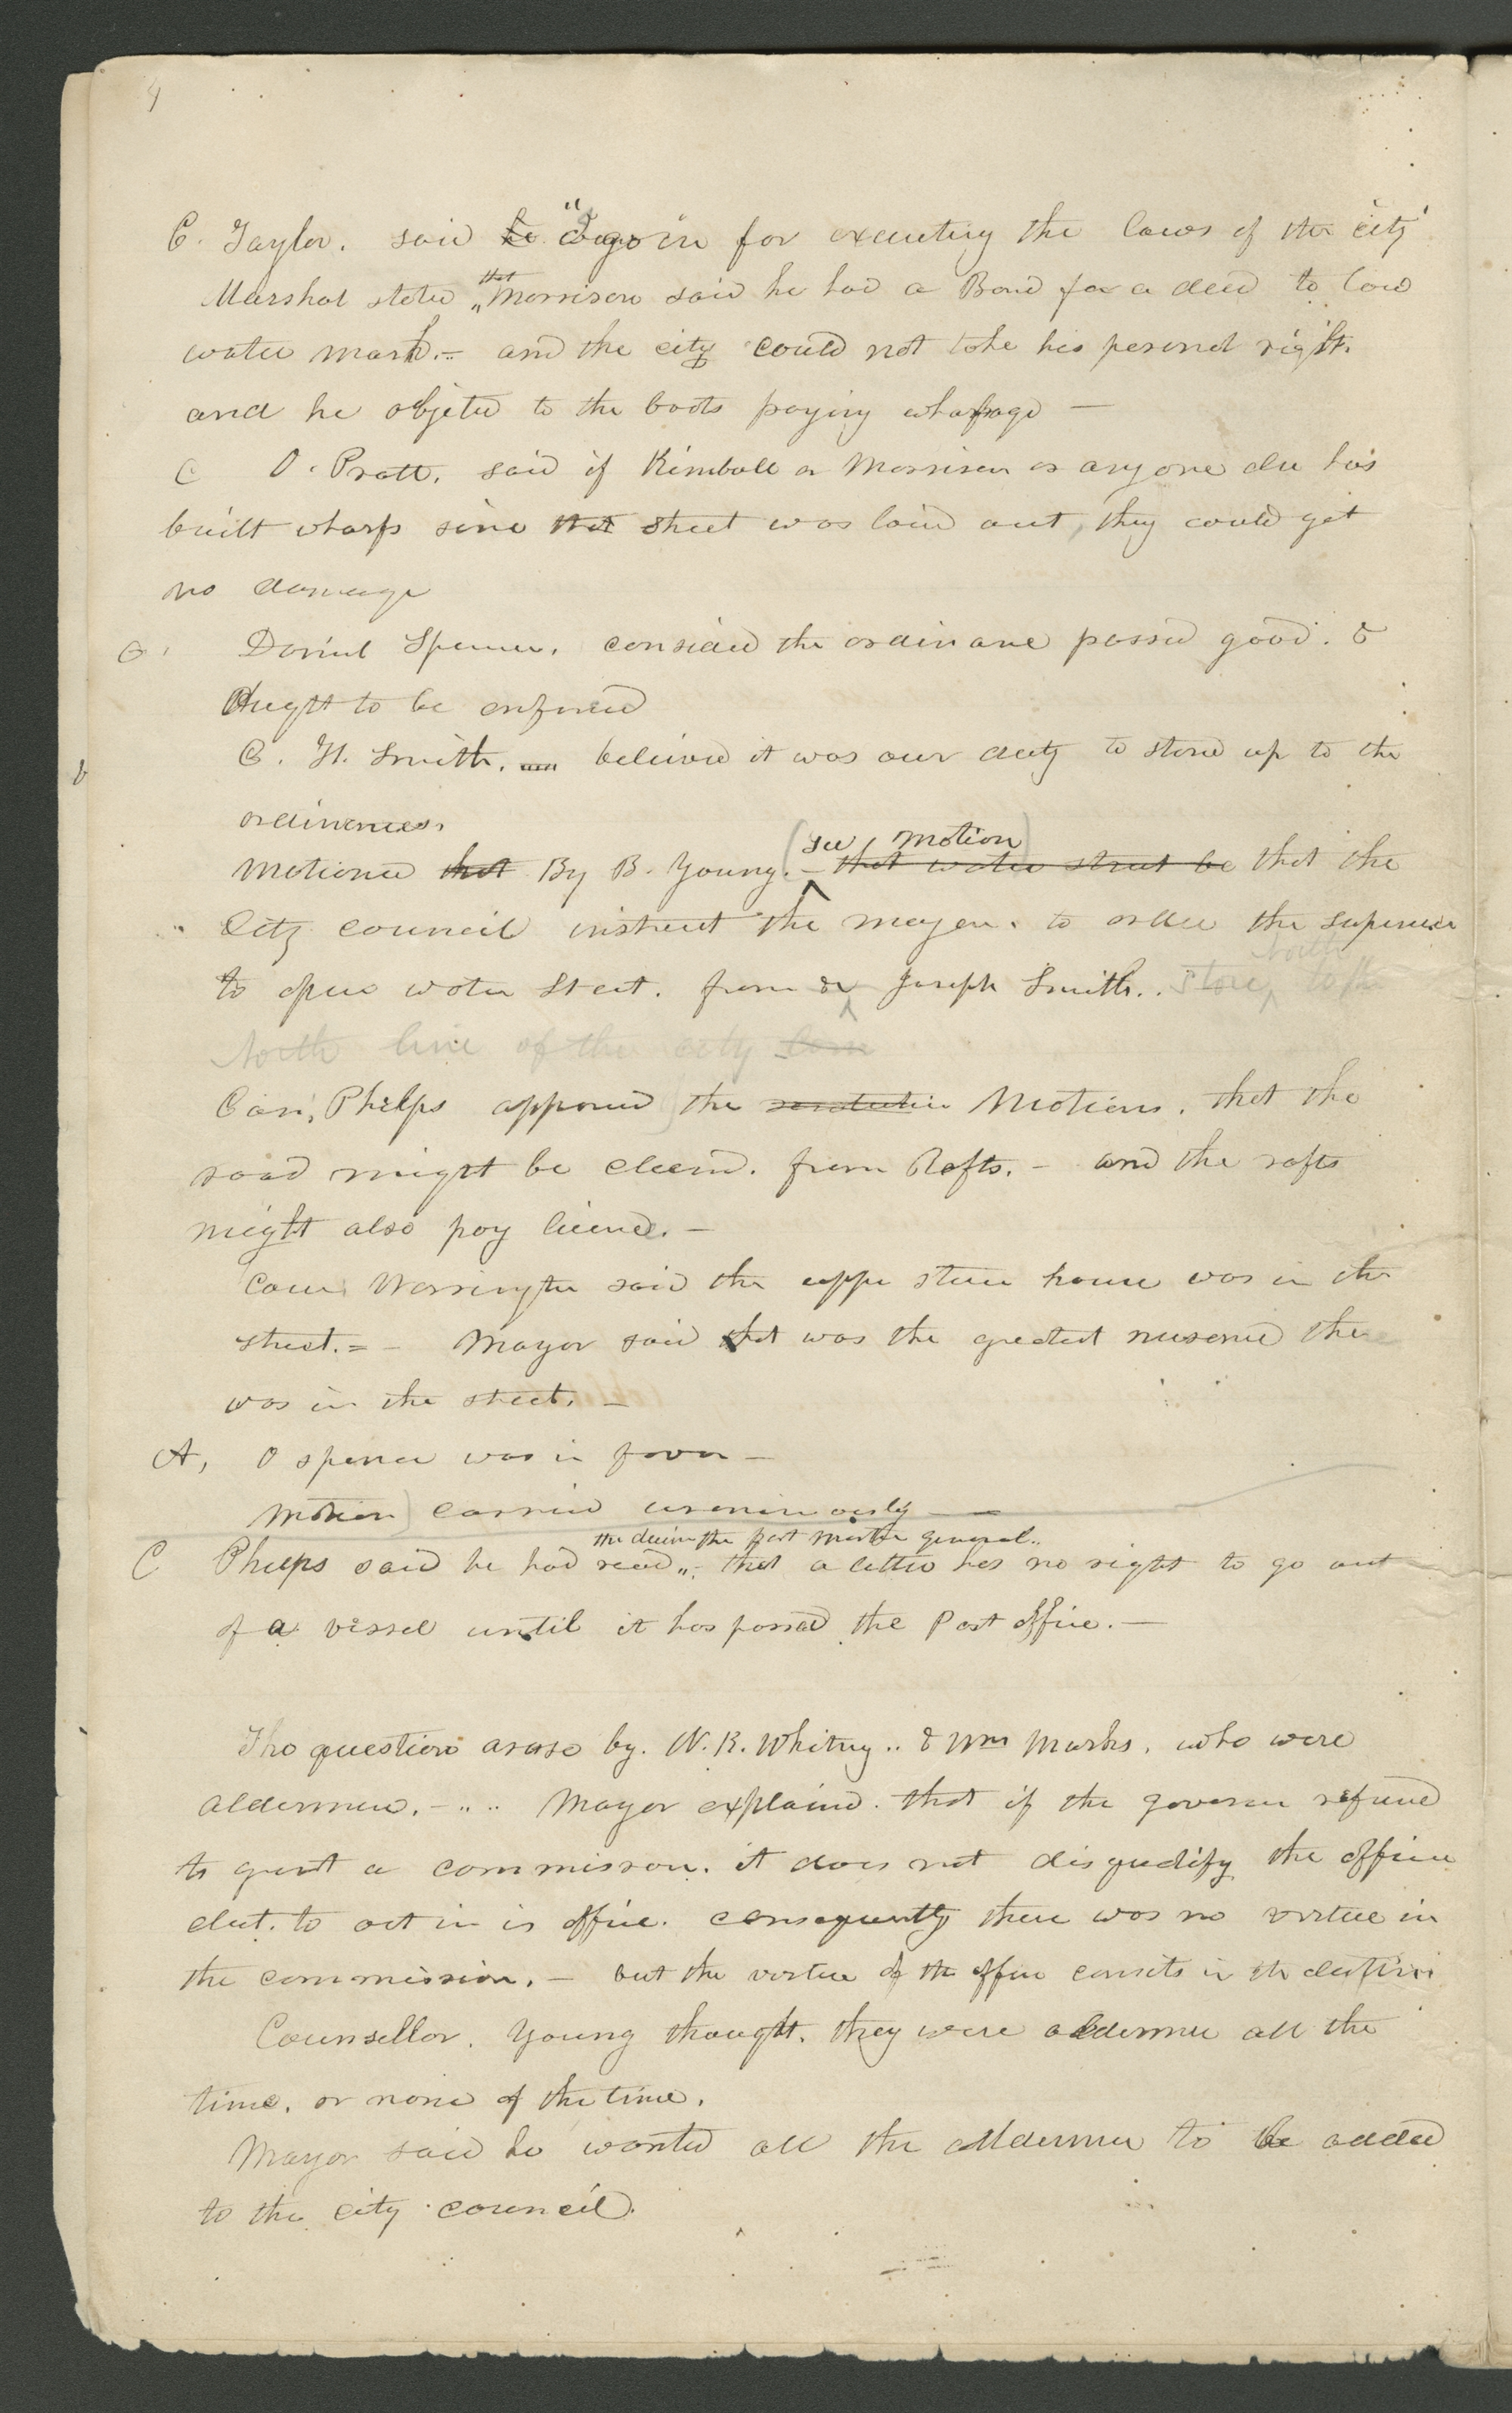 4
C. Taylor. said he "I go in for executing the laws of the city"
Marshal stated that Morrison said he had a Bond for a deed to low
water mark.- and the city could not take his personal right.
and he objeted to the boats paying wharfage —
C O. Pratt. said if Kimball or Morrison or any one else has
built wharfs since that street was laid out, they could get
no damage
C. Daniel Spencer. considerd the ordinance passed good. &
Ought to be enforced
C. H. Smith. believed it was our duty to stand up to the
ordinances.
Motioned that By B. Young. (see motion) - that water street be that the
City council instruct the mayor. to order the supervisor
to open water street. from & Joseph Smith.. Store, north to the
North line of the city
Coun, Phelps approved the resolution Motions. that the
road might be cleared. from Rafts. - and the rafts
might also pay license. -
Coun Warrington said the upper stone house was in the
street. = - Mayor said that was the greatest nusence there
was in the street. -
A, O spencer was in favor -
Motion) carried unanimously —
the decision the post master general..
C Phelps said he had read - that a letter has no right to go out
of a vessel until it has passed the Post office. —
The question arose by. N. K. Whitney .. & Wm Marks. who were
aldermen. - .. .. Mayor explaind. that if the governor refused
to grant a commission. it does not disqualify the officer
elect. to act in is office. consequently there was no virtue in
the commission. - but the virtue of the office consists in the election
Counsellor. Young thought. they were aldermen all the
time. or none of the time.
Mayor said he wanted all the aldermen to be added
to the city council.